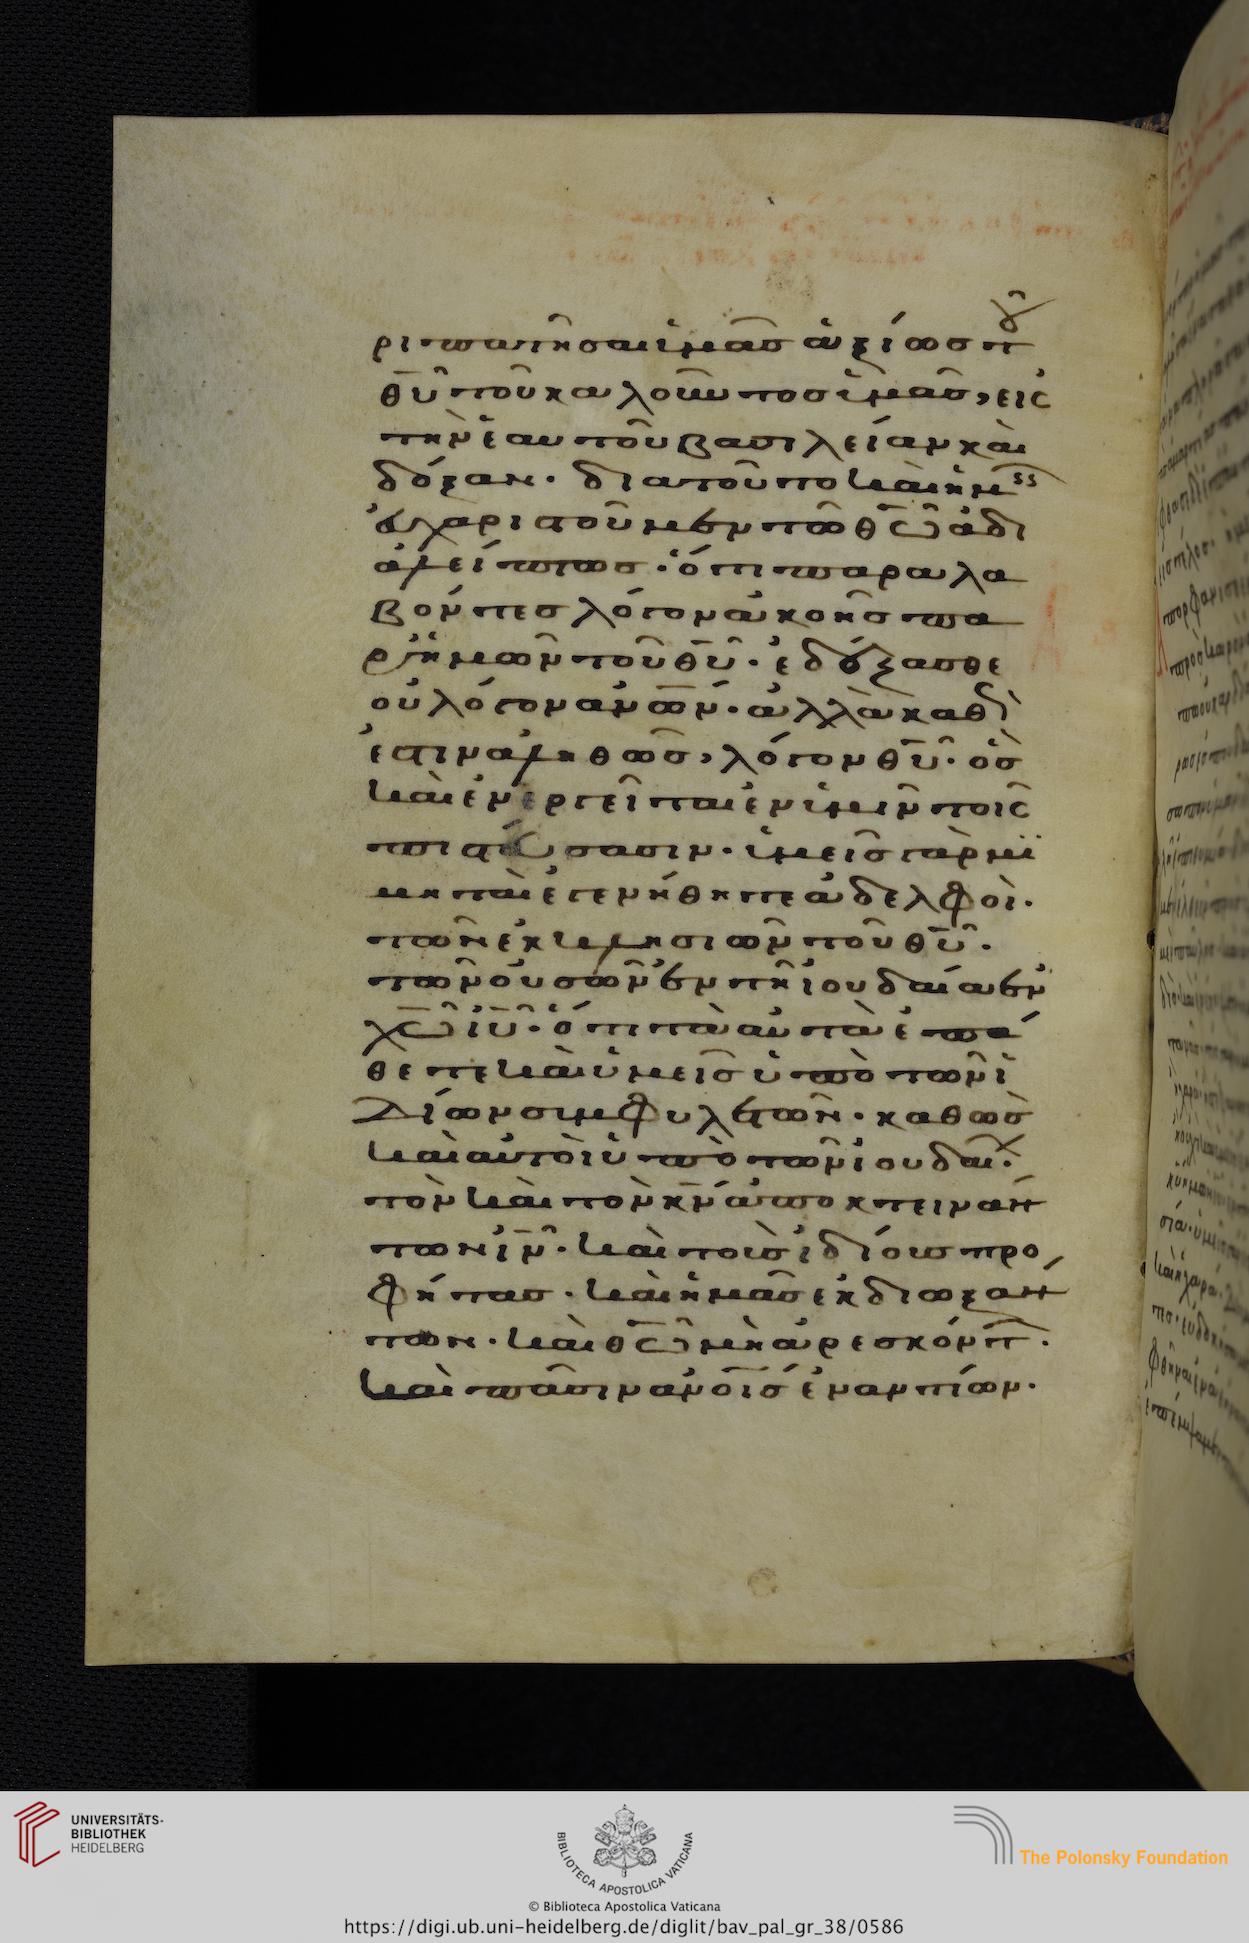 ριπατῆσαι ὑμᾶς ἀξίως τοῦ
θ̅υ̅ τοῦ καλοῦντος ὑμᾶς, εἰς
τὴν ἑαυτοῦ βασιλείαν καὶ
δόξαν. διατοῦτο καὶ ἡμεῖς
εὐχαριστοῦμεν τῶ θ̅ω̅ ἀδι
αλείπτως. ὅτι παραλα
βόντες λόγον ἀκοῆς πα
ρ' ἡμῶν τοῦ θ̅υ̅. ἐδέξασθε
οὐ λόγον ἀν̅ων. ἀλλὰ καθώ
ἐστιν ἀληθῶς, λόγον θ̅υ̅. ὃς
καὶ ἐνεργεῖται ἐν ὑμῖν τοῖς
πιστεύσασιν. ὑμεῖς γὰρ μϊ
μηταὶ ἐγενήθητε ἀδελφοὶ.
τῶν ἐκκλησιῶν τοῦ θ̅υ̅.
τῶν οὐσῶν ἐν τῆ ἰουδαία ἐν
χ̅ω̅ ἰ̅υ̅. ὅτι τὰ αὐτὰ ἐπά
θετε καὶ ὑμεῖς ὑπὸ τῶν ἰ
δίων συμφυλετῶν. καθὼς
καὶ αὐτοὶ ὑπὸ τῶν ἰουδαί.
τὸν καὶ τὸν κ̅ν̅ ἀποκτειναν
των ι̅ν̅. καὶ τοὺς ἰδίους προ
φήτας. καὶ ἡμᾶς ἐκδιωξαν
των. καὶ θ̅ω̅ μὴ ἀρεσκόντ.
καὶ πᾶσιν ἀν̅οις ἐναντίων.
UNIVERSITÄTS-
BIBLIOTHEK
HEIDELBERG
BIBLIOTECA APOSTOLICA VATICANA
The Polonsky Foundation
© Biblioteca Apostolica Vaticana
https://digi.ub.uni-heidelberg.de/diglit/bav_pal_gr_38/0586